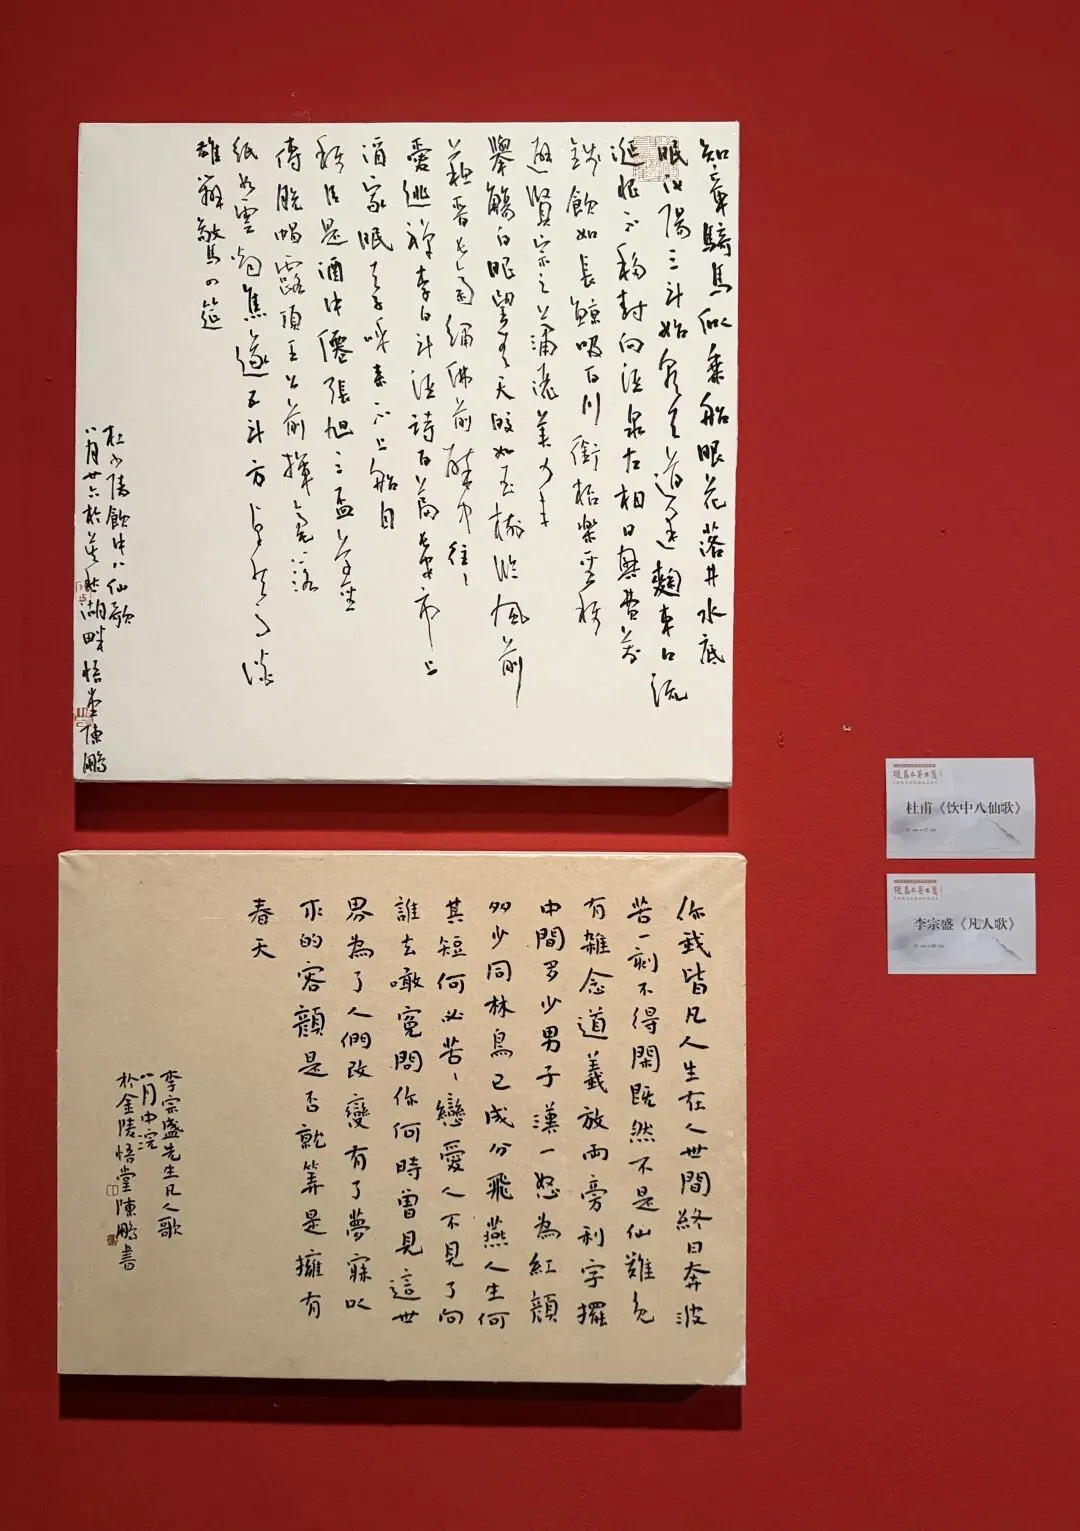 知章騎馬似乘船眼花落井水底
眠汝陽三斗始朝天道逢麴車口流
涎恨不移封向酒泉左相日興費萬
錢飲如長鯨吸百川銜杯樂聖稱
避賢宗之瀟灑美少年
舉觴白眼望青天皎如玉樹臨風前
蘇晉長齋繡佛前醉中往〻
愛逃禪李白斗酒詩百篇長安市上
酒家眠天子呼來不上船自
稱臣是酒中僊張旭三盃草聖
傳脫帽露頂王公前揮毫落
紙如雲煙焦遂五斗方卓然高談
雄辯驚四筵
杜少陵飲中八仙歌
八月廿六於莫愁湖畔悟堂陳鵬
你我皆凡人生在人世間終日奔波
苦一刻不得閑既然不是仙難免
有雜念道義放兩旁利字擺
中間多少男子漢一怒為紅顏
多少同林鳥已成分飛燕人生何
其短何必苦〻戀愛人不見了向
誰去噉冤問你何時曾見這世
界為了人們改變有了夢寐以
求的容顏是否就算是擁有
春天
李宗盛先生凡人歌
八月中浣
於金陵悟堂陳鵬書
杜甫《饮中八仙歌》
李宗盛《凡人歌》